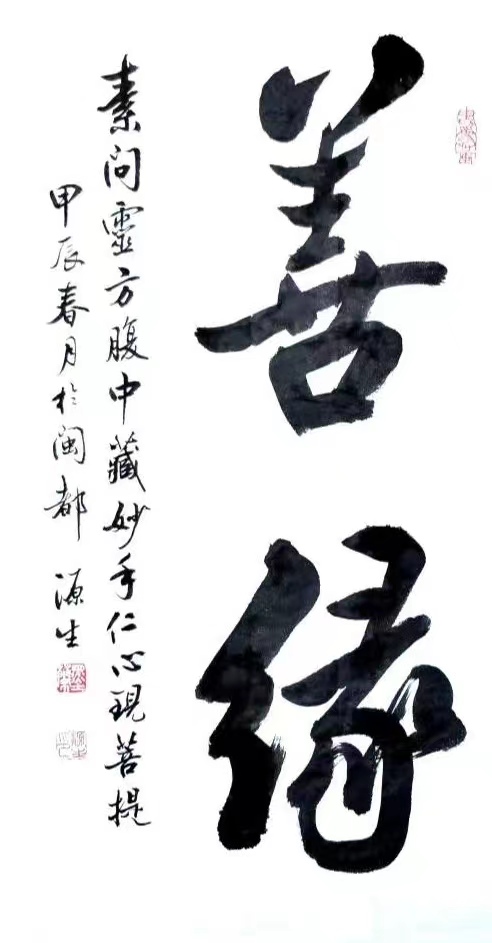 善缘
素问靈方腹中藏妙手仁心現菩提
甲辰春月於闽都 源生